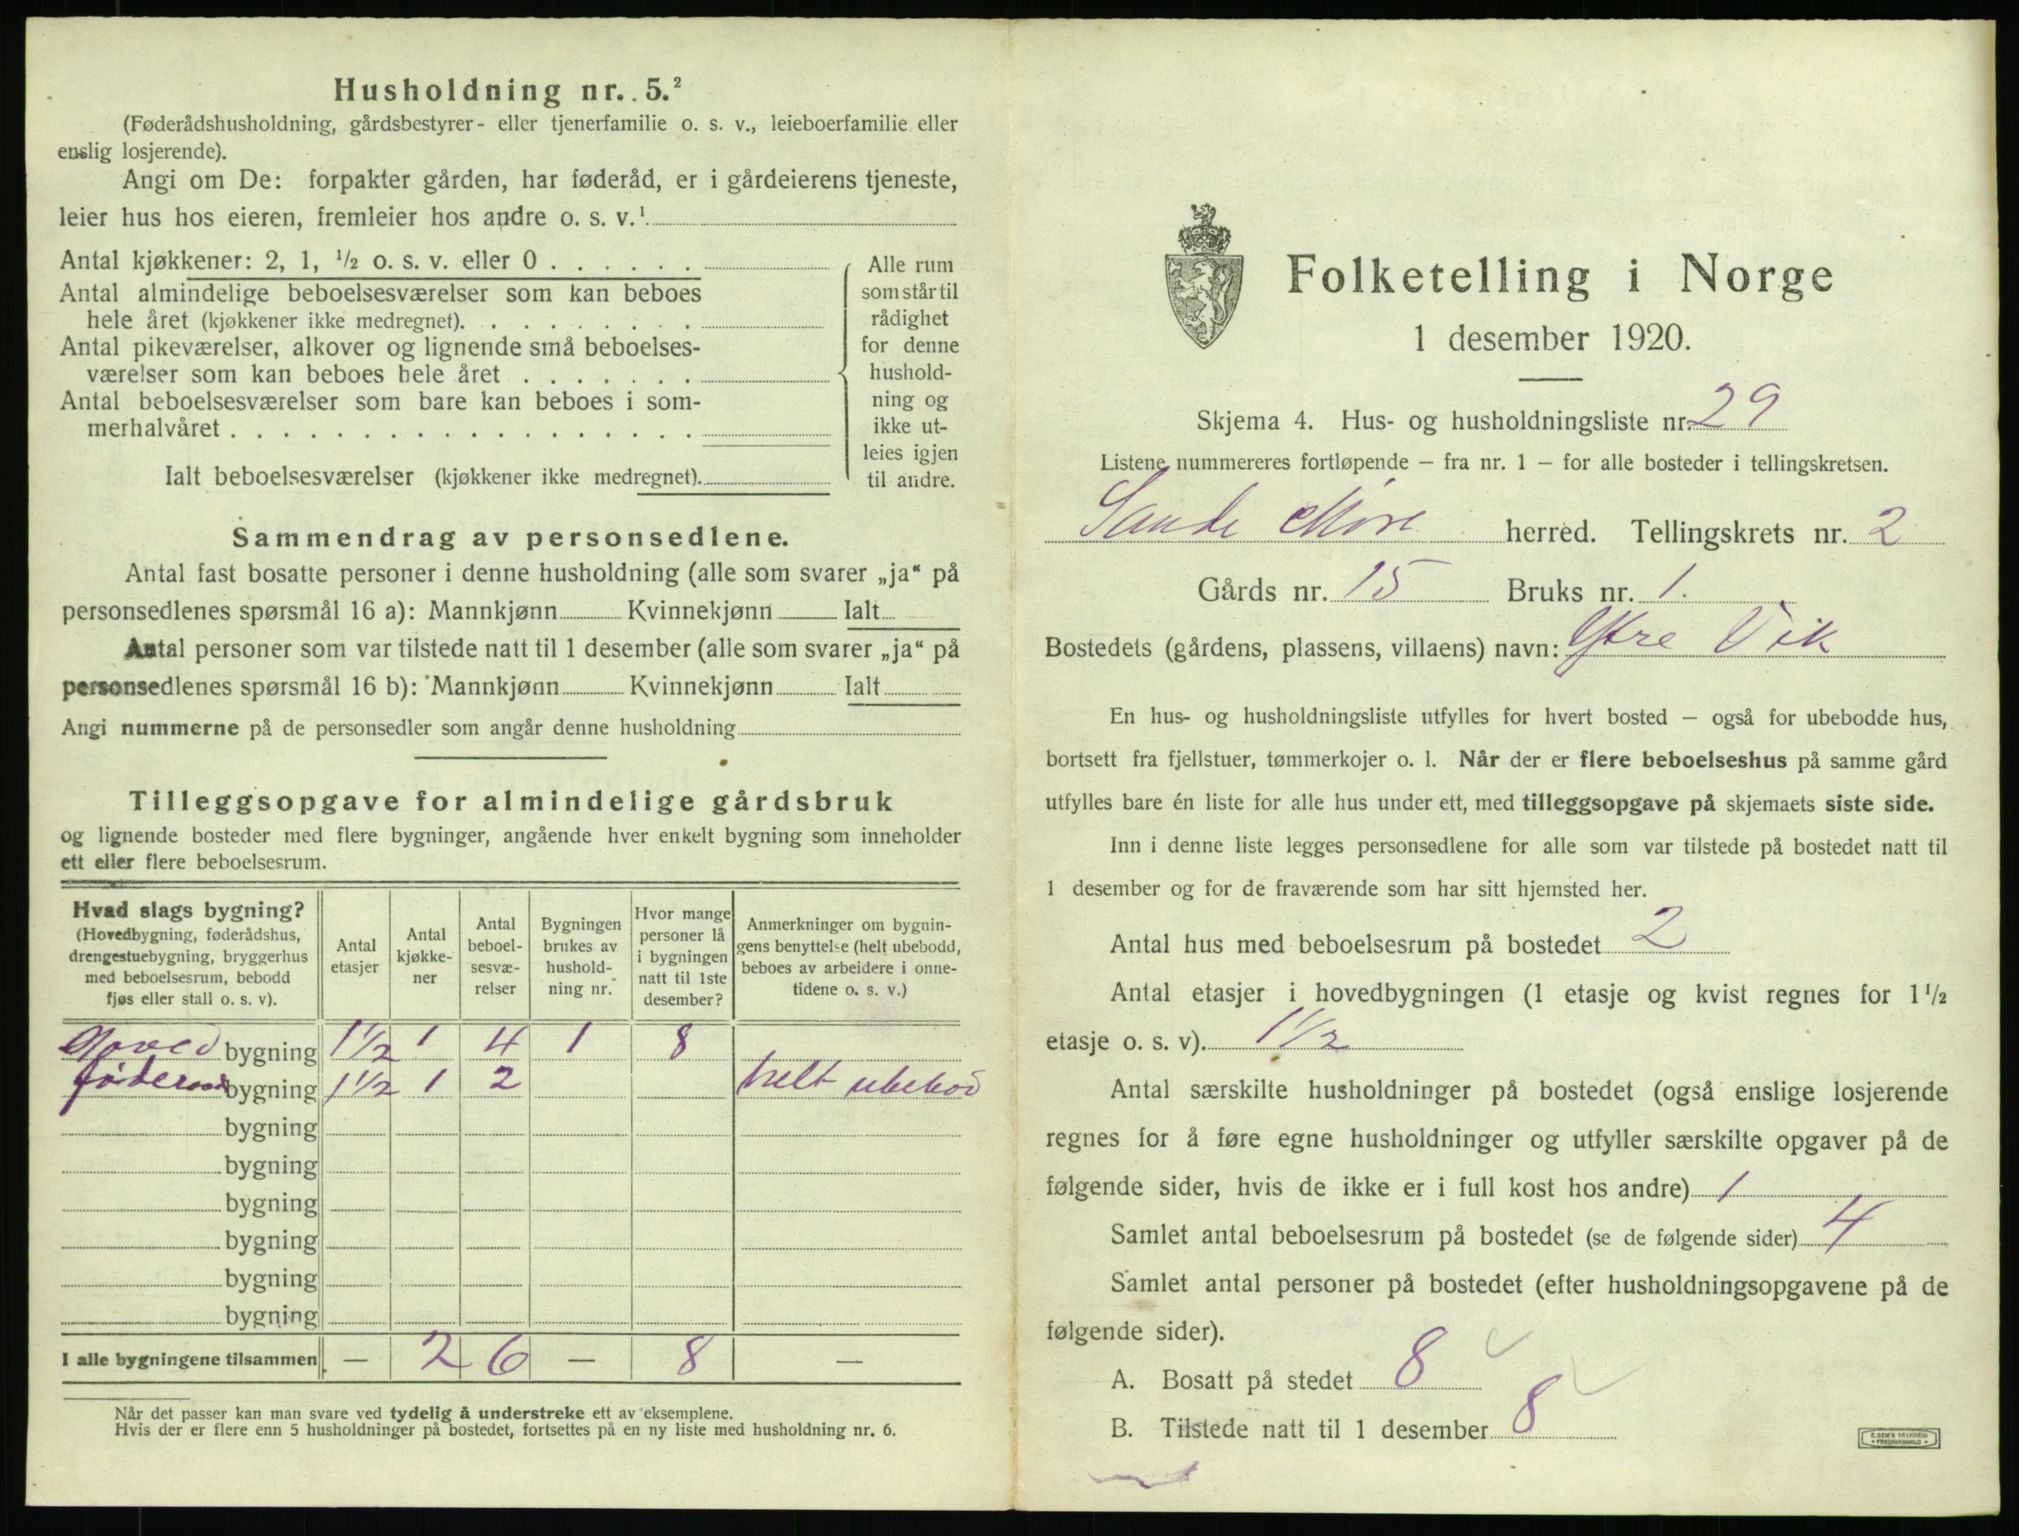 Husholdning nr. 5.²
(Føderådshusholdning, gårdsbestyrer- eller tjenerfamilie o. s. v., leieboerfamilie eller
enslig losjerende).
Angi om De: forpakter gården, har føderåd, er i gårdeierens tjeneste,
leier hus hos eieren, fremleier hos andre o. s. v.¹
Antal kjøkkener: 2, 1, ½ o. s. v. eller 0 . . . . . .
Antal almindelige beboelsesværelser som kan beboes
hele året (kjøkkener ikke medregnet). . . . . . . . .
Antal pikeværelser, alkover og lignende små beboelses-
værelser som kan beboes hele året . . . . . . .
Antal beboelsesværelser som bare kan beboes i som-
merhalvåret . . . . . . . . . . . . . . . . . .
Ialt beboelsesværelser (kjøkkener ikke medregnet).
Alle rum
som står til
rådighet
for denne
hushold-
ning og
ikke ut-
leies igjen
til andre.
Sammendrag av personsedlene.
Antal fast bosatte personer i denne husholdning (alle som svarer „ja“ på
personsedlenes spørsmål 16 a): Mannkjønn Kvinnekjønn Ialt
Antal personer som var tilstede natt til 1 desember (alle som svarer „ja“ på
personsedlenes spørsmål 16 b): Mannkjønn Kvinnekjønn Ialt
Angi nummerne på de personsedler som angår denne husholdning
Tilleggsopgave for almindelige gårdsbruk
og lignende bosteder med flere bygninger, angående hver enkelt bygning som inneholder
ett eller flere beboelsesrum.
Hvad slags bygning?
(Hovedbygning, føderådshus,
drengestuebygning, bryggerhus
med beboelsesrum, bebodd
fjøs eller stall o. s. v).
Antal
etasjer
Antal
kjøkke-
ner
Antal
beboel-
sesvæ-
relser
Bygningen
brukes av
hushold-
ning nr.
Hvor mange
personer lå
i bygningen
natt til 1ste
desember?
Anmerkninger om bygnin-
gens benyttelse (helt ubebodd,
beboes av arbeidere i onne-
tidene o. s. v.)
Hoved bygning 1½ 1 4 1 8
føderaads bygning 1½ 1 2 helt ubebod
bygning
bygning
bygning
bygning
bygning
bygning
I alle bygningene tilsammen — 2 6 — 8 —
Når det passer kan man svare ved tydelig å understreke ett av eksemplene.
Hvis der er flere enn 5 husholdninger på bostedet, fortsettes på en ny liste med husholdning nr. 6.
Folketelling i Norge
1 desember 1920.
Skjema 4. Hus- og husholdningsliste nr. 29
Listene nummereres fortløpende – fra nr. 1 – for alle bosteder i tellingskretsen.
Sande Møre herred. Tellingskrets nr. 2
Gårds nr. 15 Bruks nr. 1.
Bostedets (gårdens, plassens, villaens) navn: Ytre Vik
En hus- og husholdningsliste utfylles for hvert bosted – også for ubebodde hus,
bortsett fra fjellstuer, tømmerkojer o. l. Når der er flere beboelseshus på samme gård
utfylles bare én liste for alle hus under ett, med tilleggsopgave på skjemaets siste side.
Inn i denne liste legges personsedlene for alle som var tilstede på bostedet natt til
1 desember og for de fraværende som har sitt hjemsted her.
Antal hus med beboelsesrum på bostedet 2
Antal etasjer i hovedbygningen (1 etasje og kvist regnes for 1½
etasje o. s. v). 1½
Antal særskilte husholdninger på bostedet (også enslige losjerende
regnes for å føre egne husholdninger og utfyller særskilte opgaver på de
følgende sider, hvis de ikke er i full kost hos andre) 1
Samlet antal beboelsesrum på bostedet (se de følgende sider) 4
Samlet antal personer på bostedet (efter husholdningsopgavene på de
følgende sider).
A. Bosatt på stedet 8
B. Tilstede natt til 1 desember 8